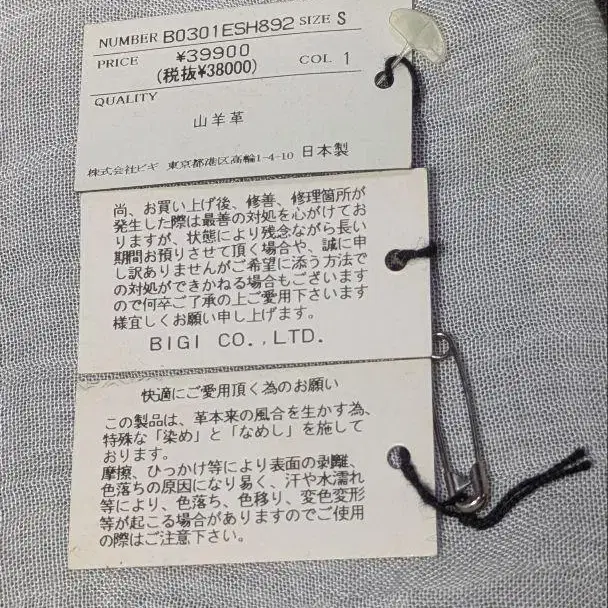 NUMBER B0301ESH892 SIZE S
PRICE ¥39900 COL 1
(税抜¥38000)
QUALITY
山羊革
株式会社ビギ 東京都港区高輪1-4-10 日本製
尚、お買い上げ後、修善、修理箇所が
発生した際は最善の対処を心がけてお
りますが、状態により残念ながら長い
期間お預りさせて頂く場合や、誠に申
し訳ありませんがご希望に添う方法で
の対処ができかねる場合もございます
ので何卒ご了承の上ご愛用下さいます
様宜しくお願い申し上げます。
BIGI CO.,LTD.
快適にご愛用頂く為のお願い
この製品は、革本来の風合を生かす為、
特殊な「染め」と「なめし」を施して
おります。
摩擦、ひっかけ等により表面の剥離、
色落ちの原因になり易く、汗や水濡れ
等により、色落ち、色移り、変色変形
等が起こる場合がありますのでご使用
の際はご注意下さい。